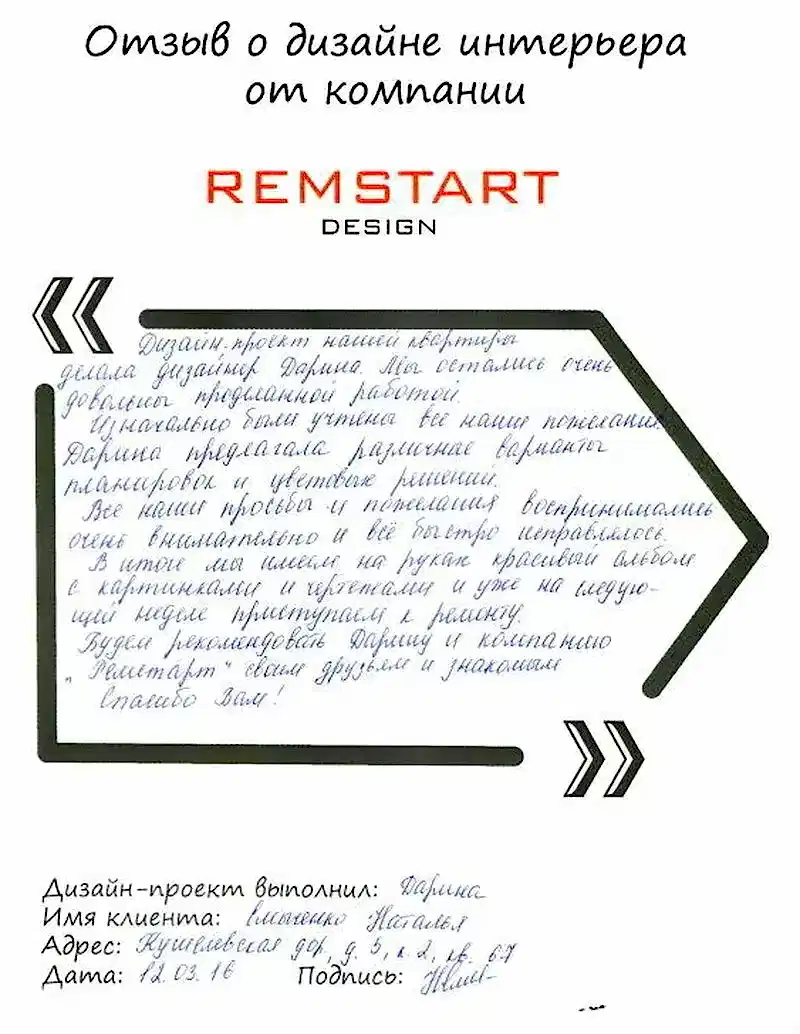 Отзыв о дизайне интерьера
от компании
REMSTART
DESIGN
Дизайн-проект нашей квартиры
делала дизайнер Дарина. Мы остались очень
довольны проделанной работой.
Изначально были учтены все наши пожелания.
Дарина предлагала различные варианты
планировок и цветовых решений.
Все наши просьбы и пожелания воспринимались
очень внимательно и всё быстро исправлялось.
В итоге мы имеем на руках красивый альбом
с картинками и чертежами и уже на следую-
щей неделе приступаем к ремонту.
Будем рекомендовать Дарину и компанию
"Ремстарт" своим друзьям и знакомым
Спасибо Вам!
Дизайн-проект выполнил: Дарина
Имя клиента: Наталья
Адрес: Кушелевская дор, д. 3, к. 2, кв. 67
Дата: 12.03.16 Подпись: